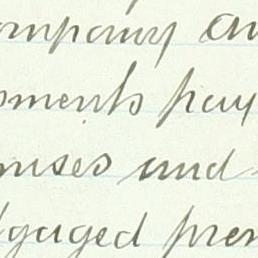 ompany an
pments pay
mises and
tgaged prem